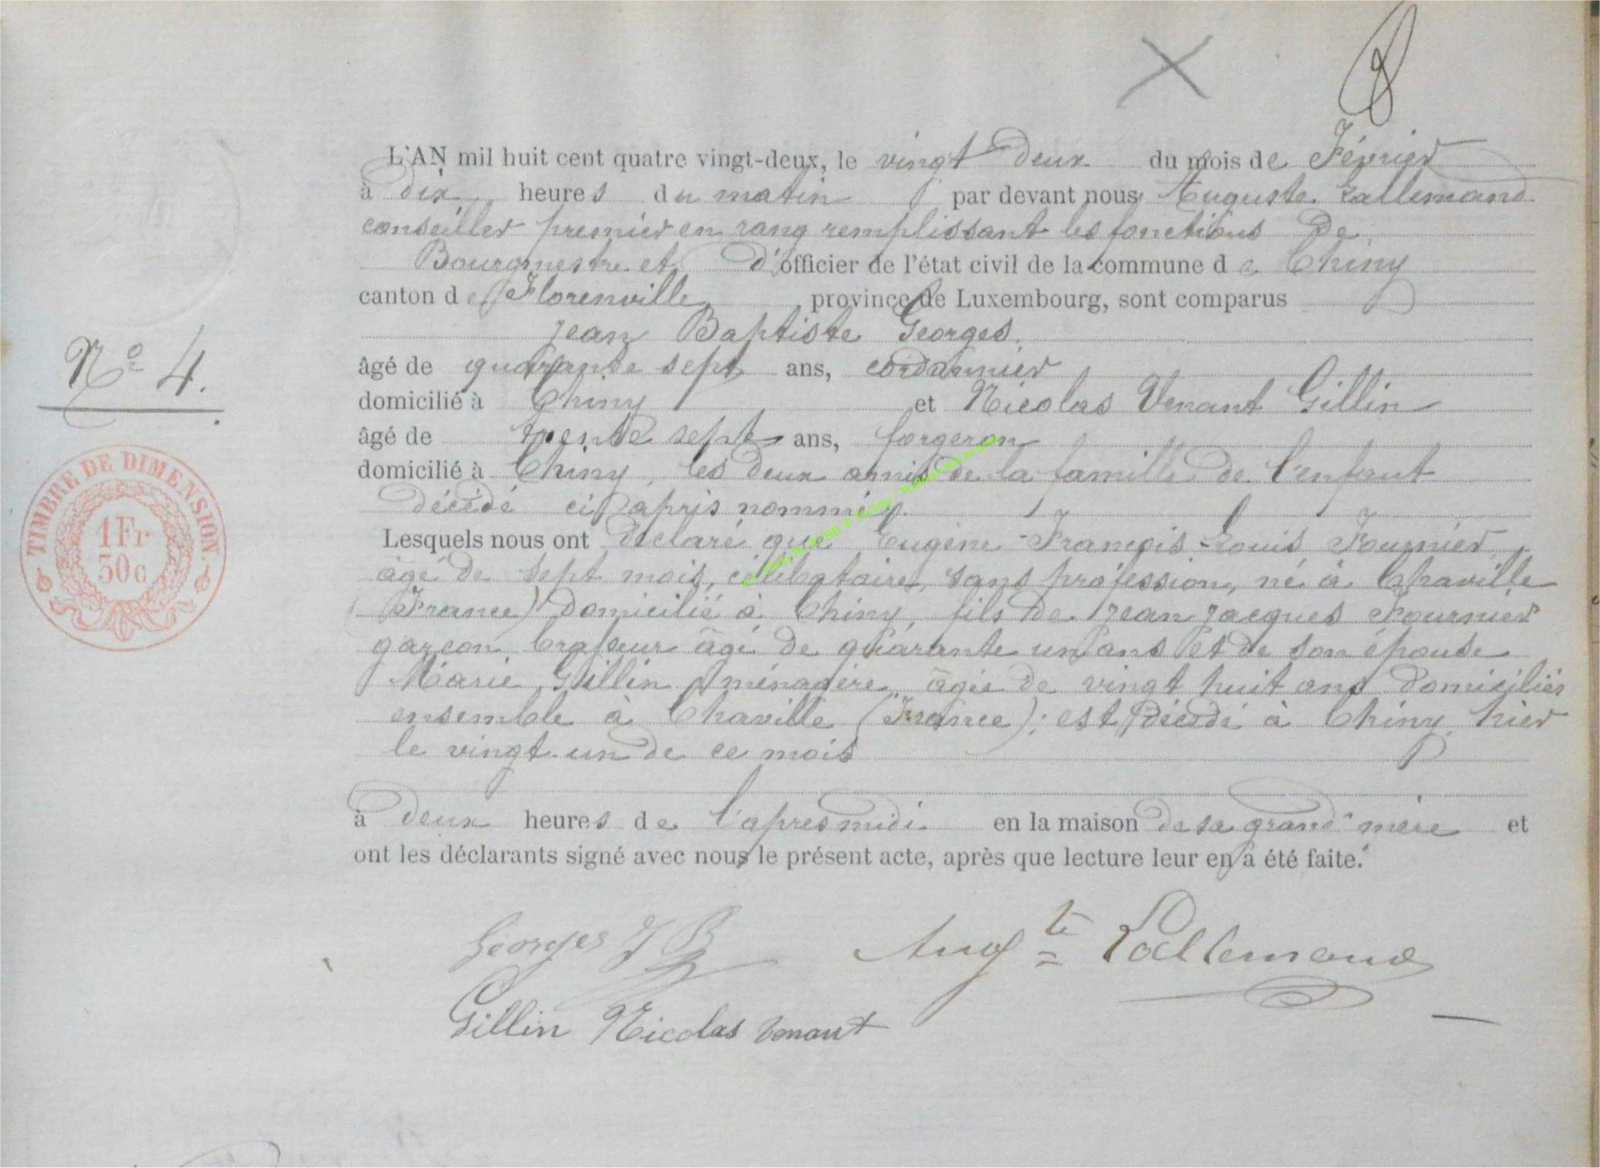 8
L'AN mil huit cent quatre vingt-deux, le vingt deux du mois de Février
à dix heures du matin par devant nous Auguste Lallemand
conseiller premier en rang remplissant les fonctions de
Bourgmestre et d'officier de l'état civil de la commune de Chiny
canton de Florenville province de Luxembourg, sont comparus
Jean Baptiste Georges
âgé de quarante sept ans, cordonnier
N° 4.
domicilié à Chiny et Nicolas Venant Gillin
âgé de trente sept ans, forgeron
domicilié à Chiny, les deux amis de la famille de l'enfant
décédé ci après nommé
Lesquels nous ont déclaré que Eugène François Louis Fournier
âgé de sept mois, célibataire, sans profession, né à Chaville
(France) domicilié à Chiny, fils de Jean Jacques Fournier
garçon brasseur âgé de quarante un ans et de son épouse
Marie Gillin ménagère âgée de vingt huit ans domiciliés
ensemble à Chaville (France); est décédé à Chiny, hier
le vingt un de ce mois
TIMBRE DE DIMENSION
1 Fr
30 c
à deux heures de l'apres midi en la maison de sa grand'mère et
ont les déclarants signé avec nous le présent acte, après que lecture leur en a été faite.
Georges J B Aug te Lallemand
Gillin Nicolas Venant